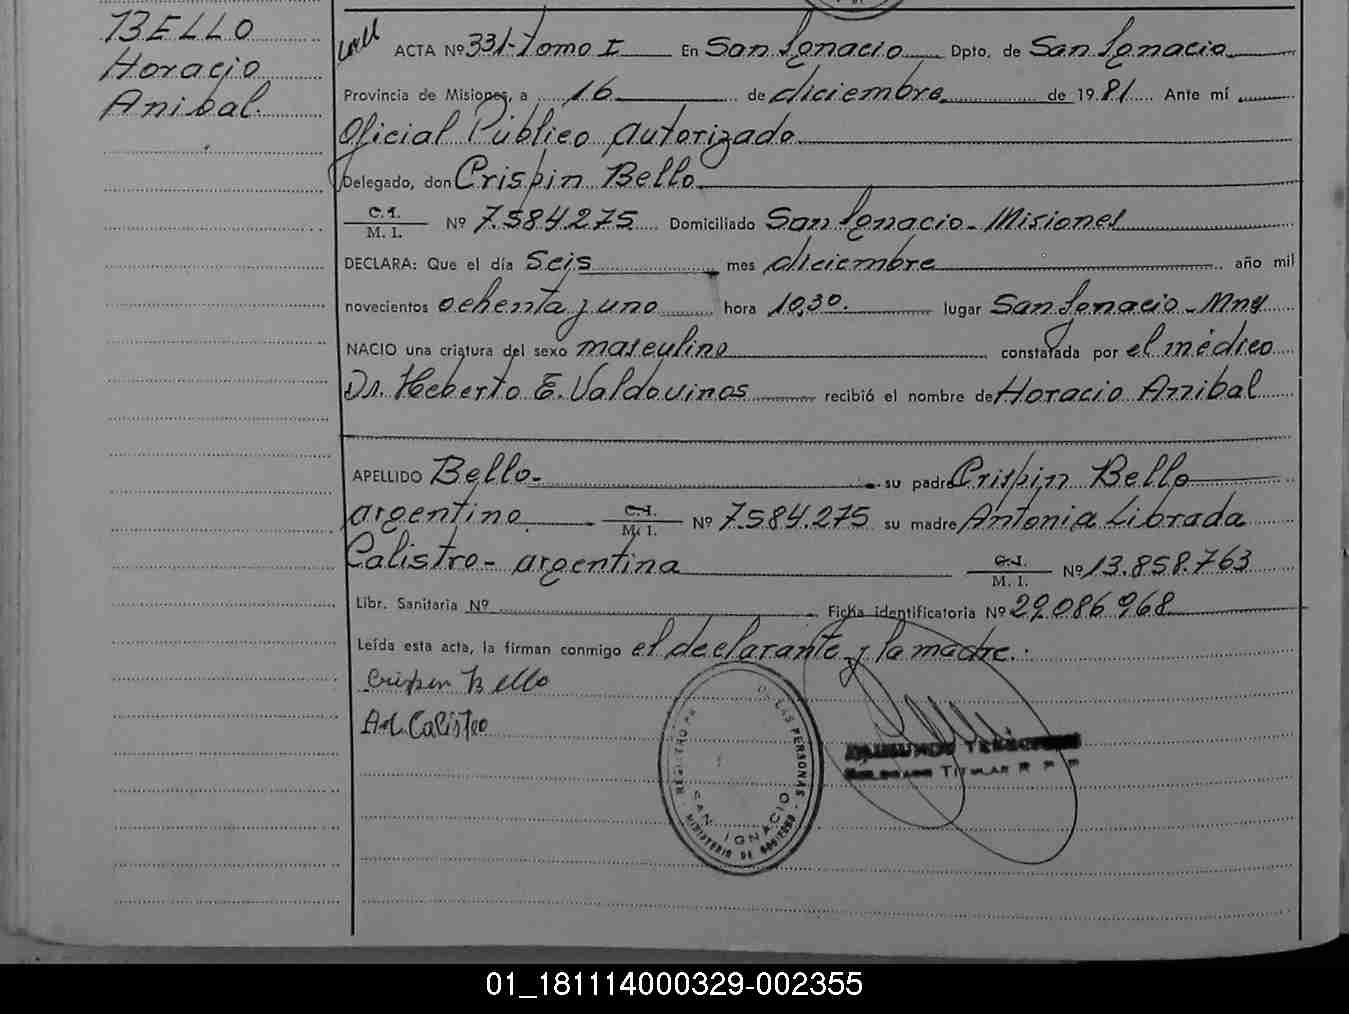 BELLO
Horacio
Anibal.
ACTA Nº 331-Tomo I En San Ignacio Dpto. de San Ignacio
Provincia de Misiones, a 16 de diciembre de 1981 Ante mí
Oficial Público Autorizado
Delegado, don Crispin Bello
C. I.
M. I. Nº 7.584.275 Domiciliado San Ignacio - Misiones
DECLARA: Que el día Seis mes diciembre año mil
novecientos ochenta y uno hora 10,30. lugar San Ignacio - Mnes
NACIO una criatura del sexo masculino constatada por el médico
Dr. Heberto E. Valdovinos recibió el nombre de Horacio Anibal
APELLIDO Bello- su padre Crispin Bello
argentino C. I. M. I. Nº 7.584.275 su madre Antonia Librada
Calistro - argentina C. I. M. I. Nº 13.858.763
Libr. Sanitaria Nº Ficha identificatoria Nº 29.086.968
Leída esta acta, la firman conmigo el declarante y la madre.
Crispin Bello
A.L. Calistro
REGISTRO DE LAS PERSONAS
SAN IGNACIO
MINISTERIO DE GOBIERNO
TITULAR R P P
01_181114000329-002355